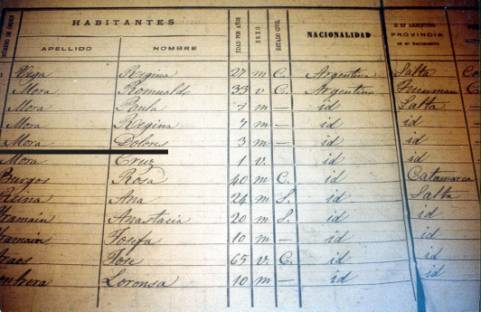 HABITANTES
APELLIDO NOMBRE EDAD POR AÑOS SEXO ESTADO CIVIL NACIONALIDAD PROVINCIA
Vega Regina 27 m C. Argentina Salta
Mora Romualdo 33 v C. Argentino Tucuman
Mora Paula m — id Salta
Mora Regina 7 m — id id
Mora Dolores 3 m — id id
Mora Cruz 1 v. id id
Burgos Rosa 40 m C. id Catamarca
Reina Ana 24 m S. id Salta
Anastacia 20 m S. id id
Josefa 10 m — id id
Jose 65 v. C. id id
Lorensa 10 m — id id